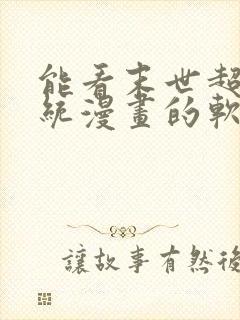 能看末世超
統漫畫的軟
讓故事有然後